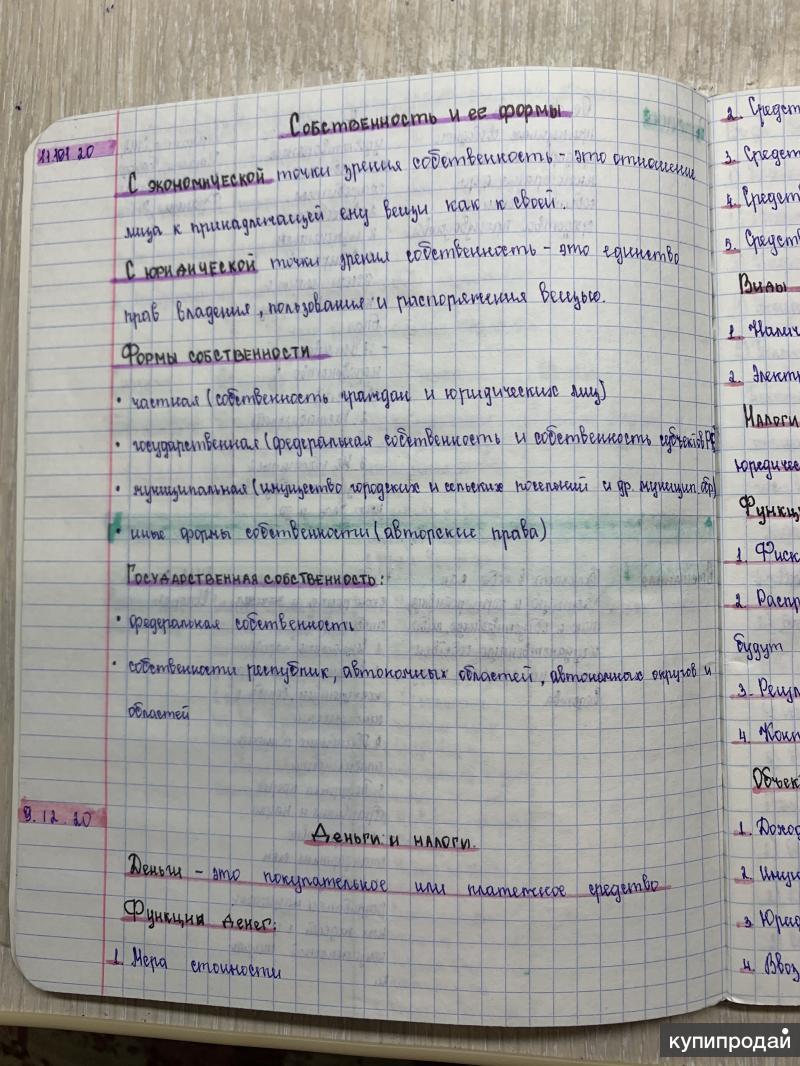 Собственность и ее формы
20
С экономической точки зрения собственность - это отношение
лица к принадлежащей ему вещи как к своей.
С юридической точки зрения собственность - это единство
прав владения, пользования и распоряжения вещью.
Формы собственности
• частная (собственность граждан и юридических лиц)
• государственная (федеральная собственность и собственность субъектов РФ)
• муниципальная (имущество городских и сельских поселений и др. муницип. обр)
• иные формы собственности (авторские права)
Государственная собственность:
• федеральная собственность
• собственности республик, автономных областей, автономных округов и
областей
9.12.20
Деньги и налоги.
Деньги - это покупательное или платежное средство
Функции денег:
1. Мера стоимости
2. Средст
3. Средст
4. Средст
5. Средств
Виды
1. Налич
2. Электр
Налоги
юредичес
Функци
1. Фиск
2. Распр
будут
3. Регул
4. Конт
Объек
1. Доход
2. Имущ
3.
4. Ввоз
купипродай